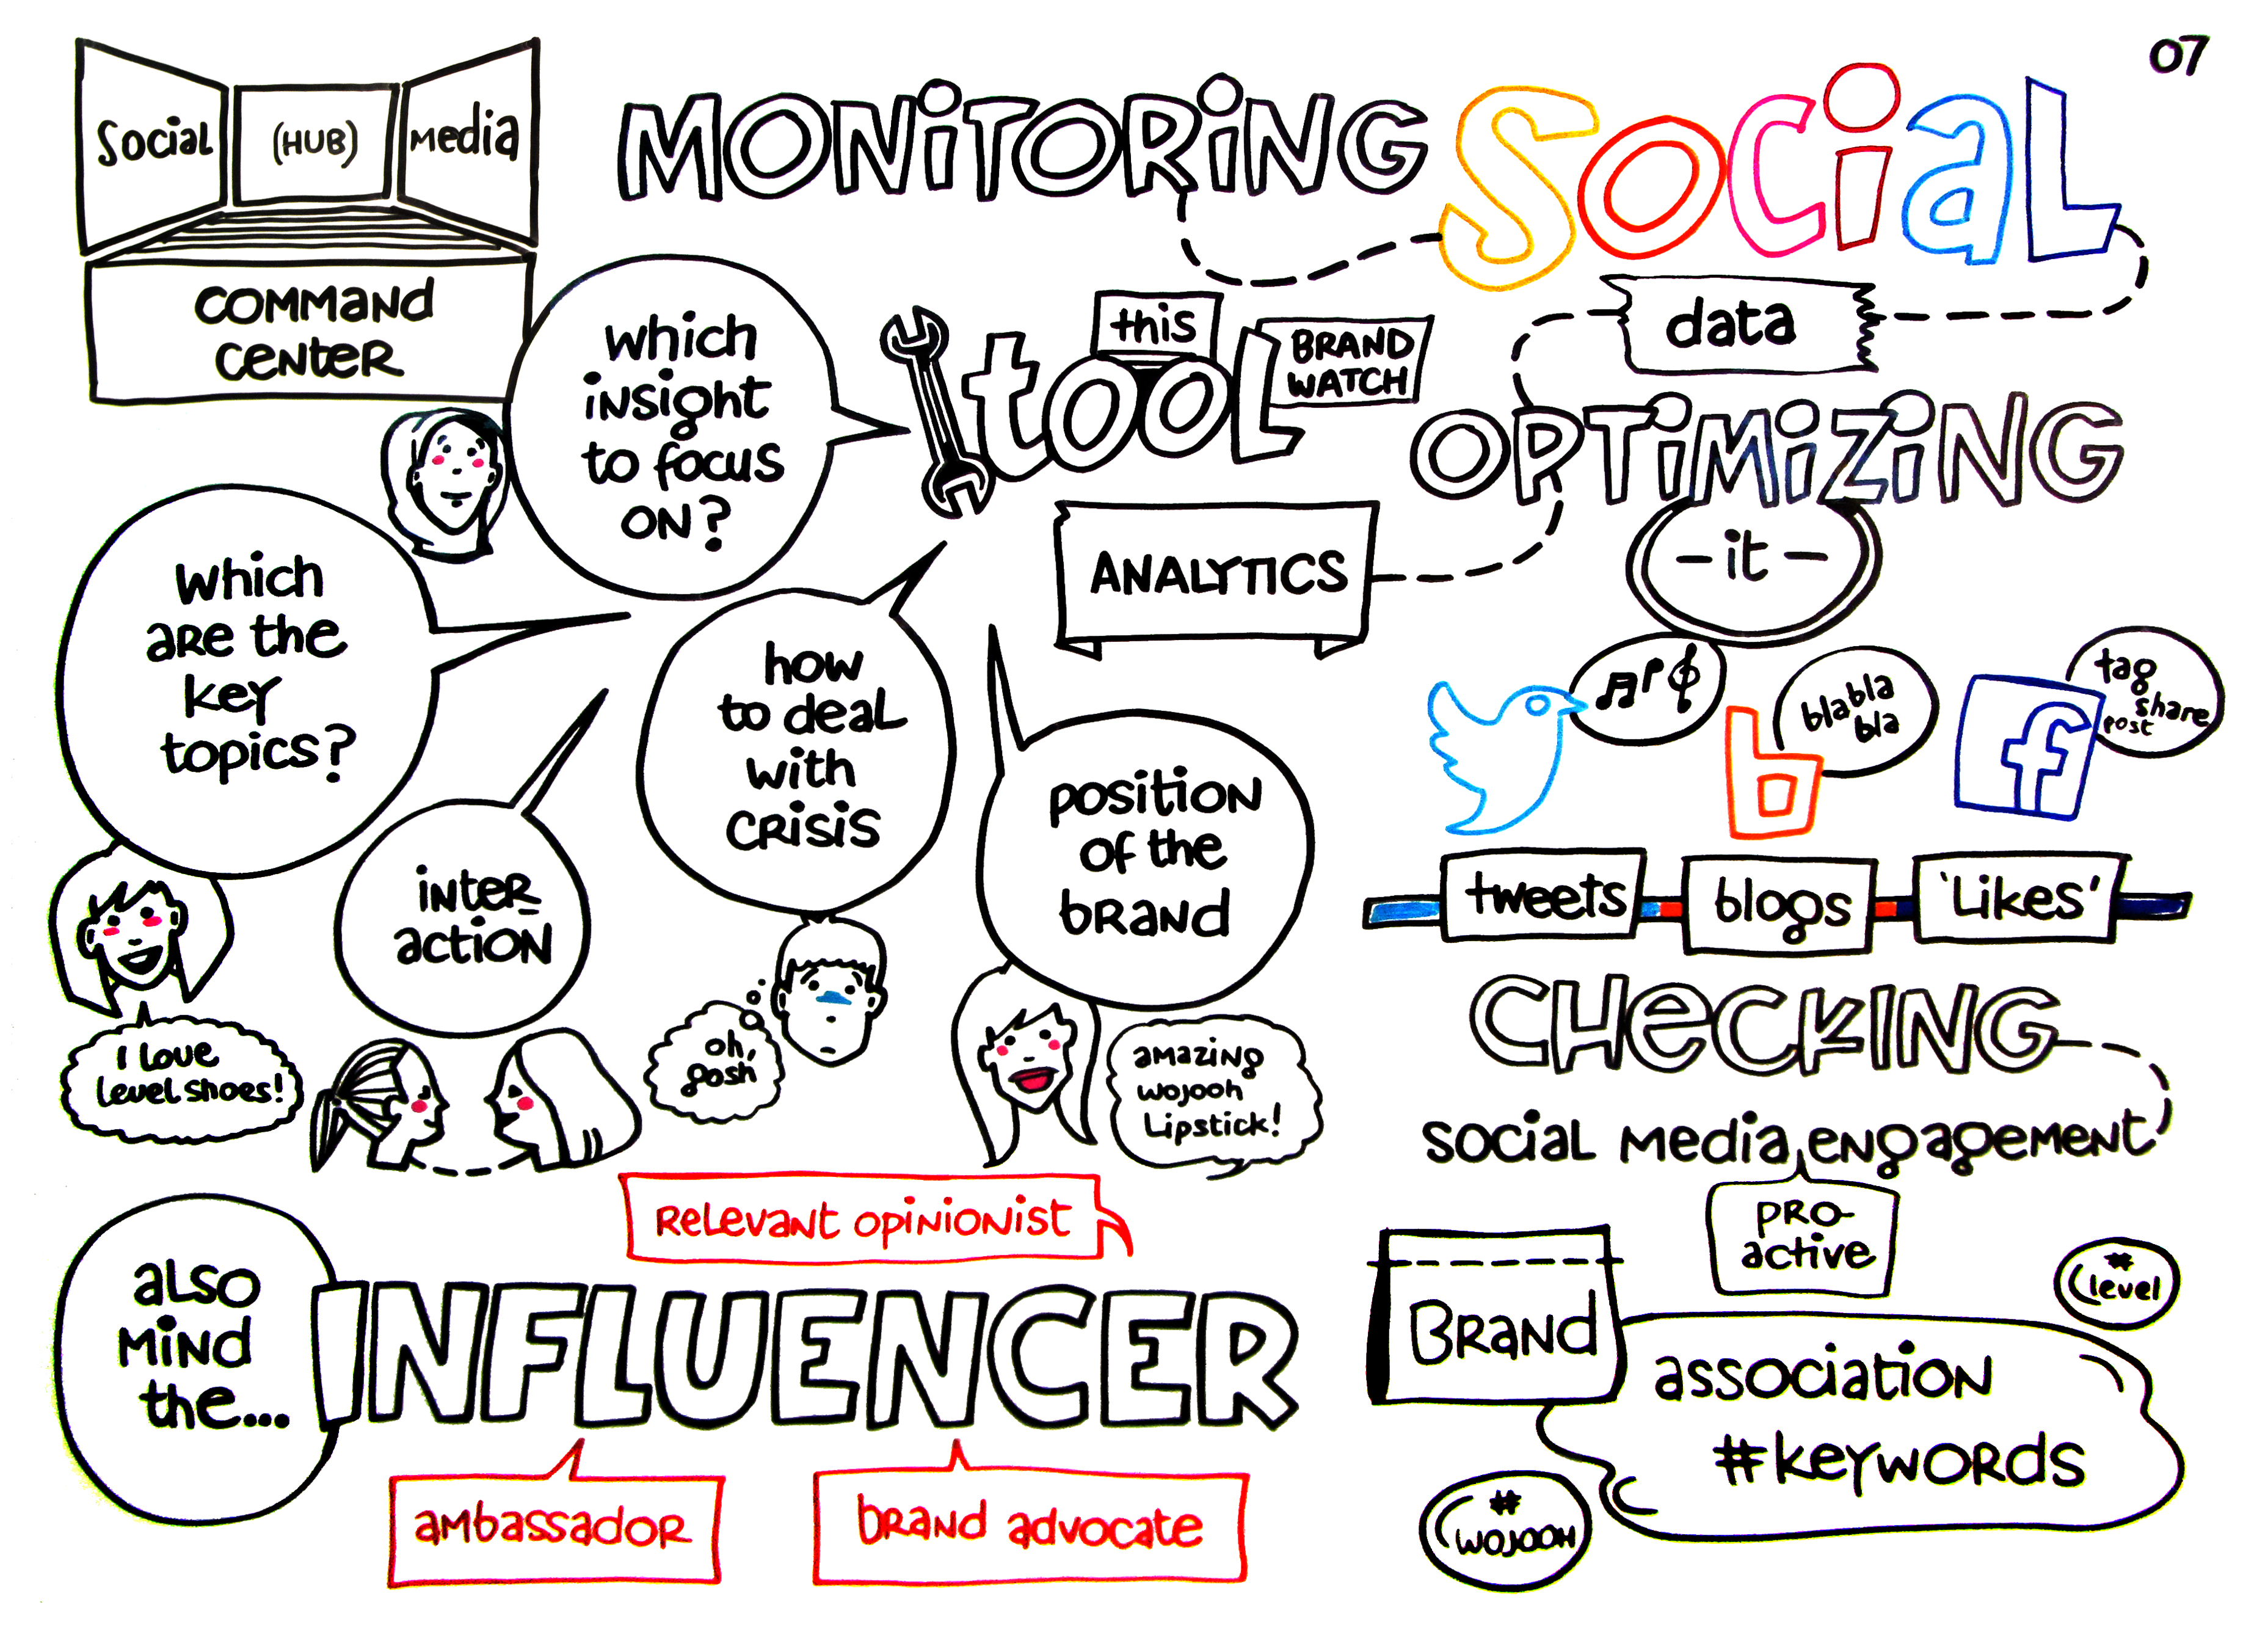 07
Social (HUB) Media
COMMAND
CENTER
MONITORING SOCIAL
data
this
tool
BRAND
WATCH
OPTIMIZING
- it -
ANALYTICS
which
insight
to focus
ON?
Which
are the
key
topics?
how
to deal
with
CRISIS
position
of the
brand
inter-
action
I love
level shoes!
oh,
gosh
amazing
wojooh
Lipstick!
bla bla
bla
tag
share
post
b
f
tweets
blogs
'Likes'
CHECKING
social media engagement
PRO-
active
Brand
association
#keywords
#
level
#
WOJOOH
also
mind
the...
INFLUENCER
Relevant opinionist
ambassador
brand advocate